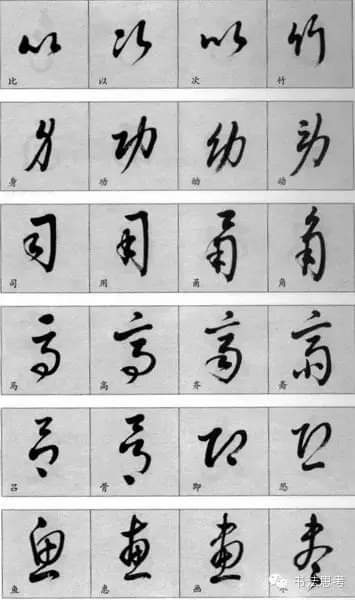 比 以 次 竹
身 功 幼 动
司 用 甬 角
马 高 齐 斋
吕 骨 即 恐
鱼 惠 画
书法思考